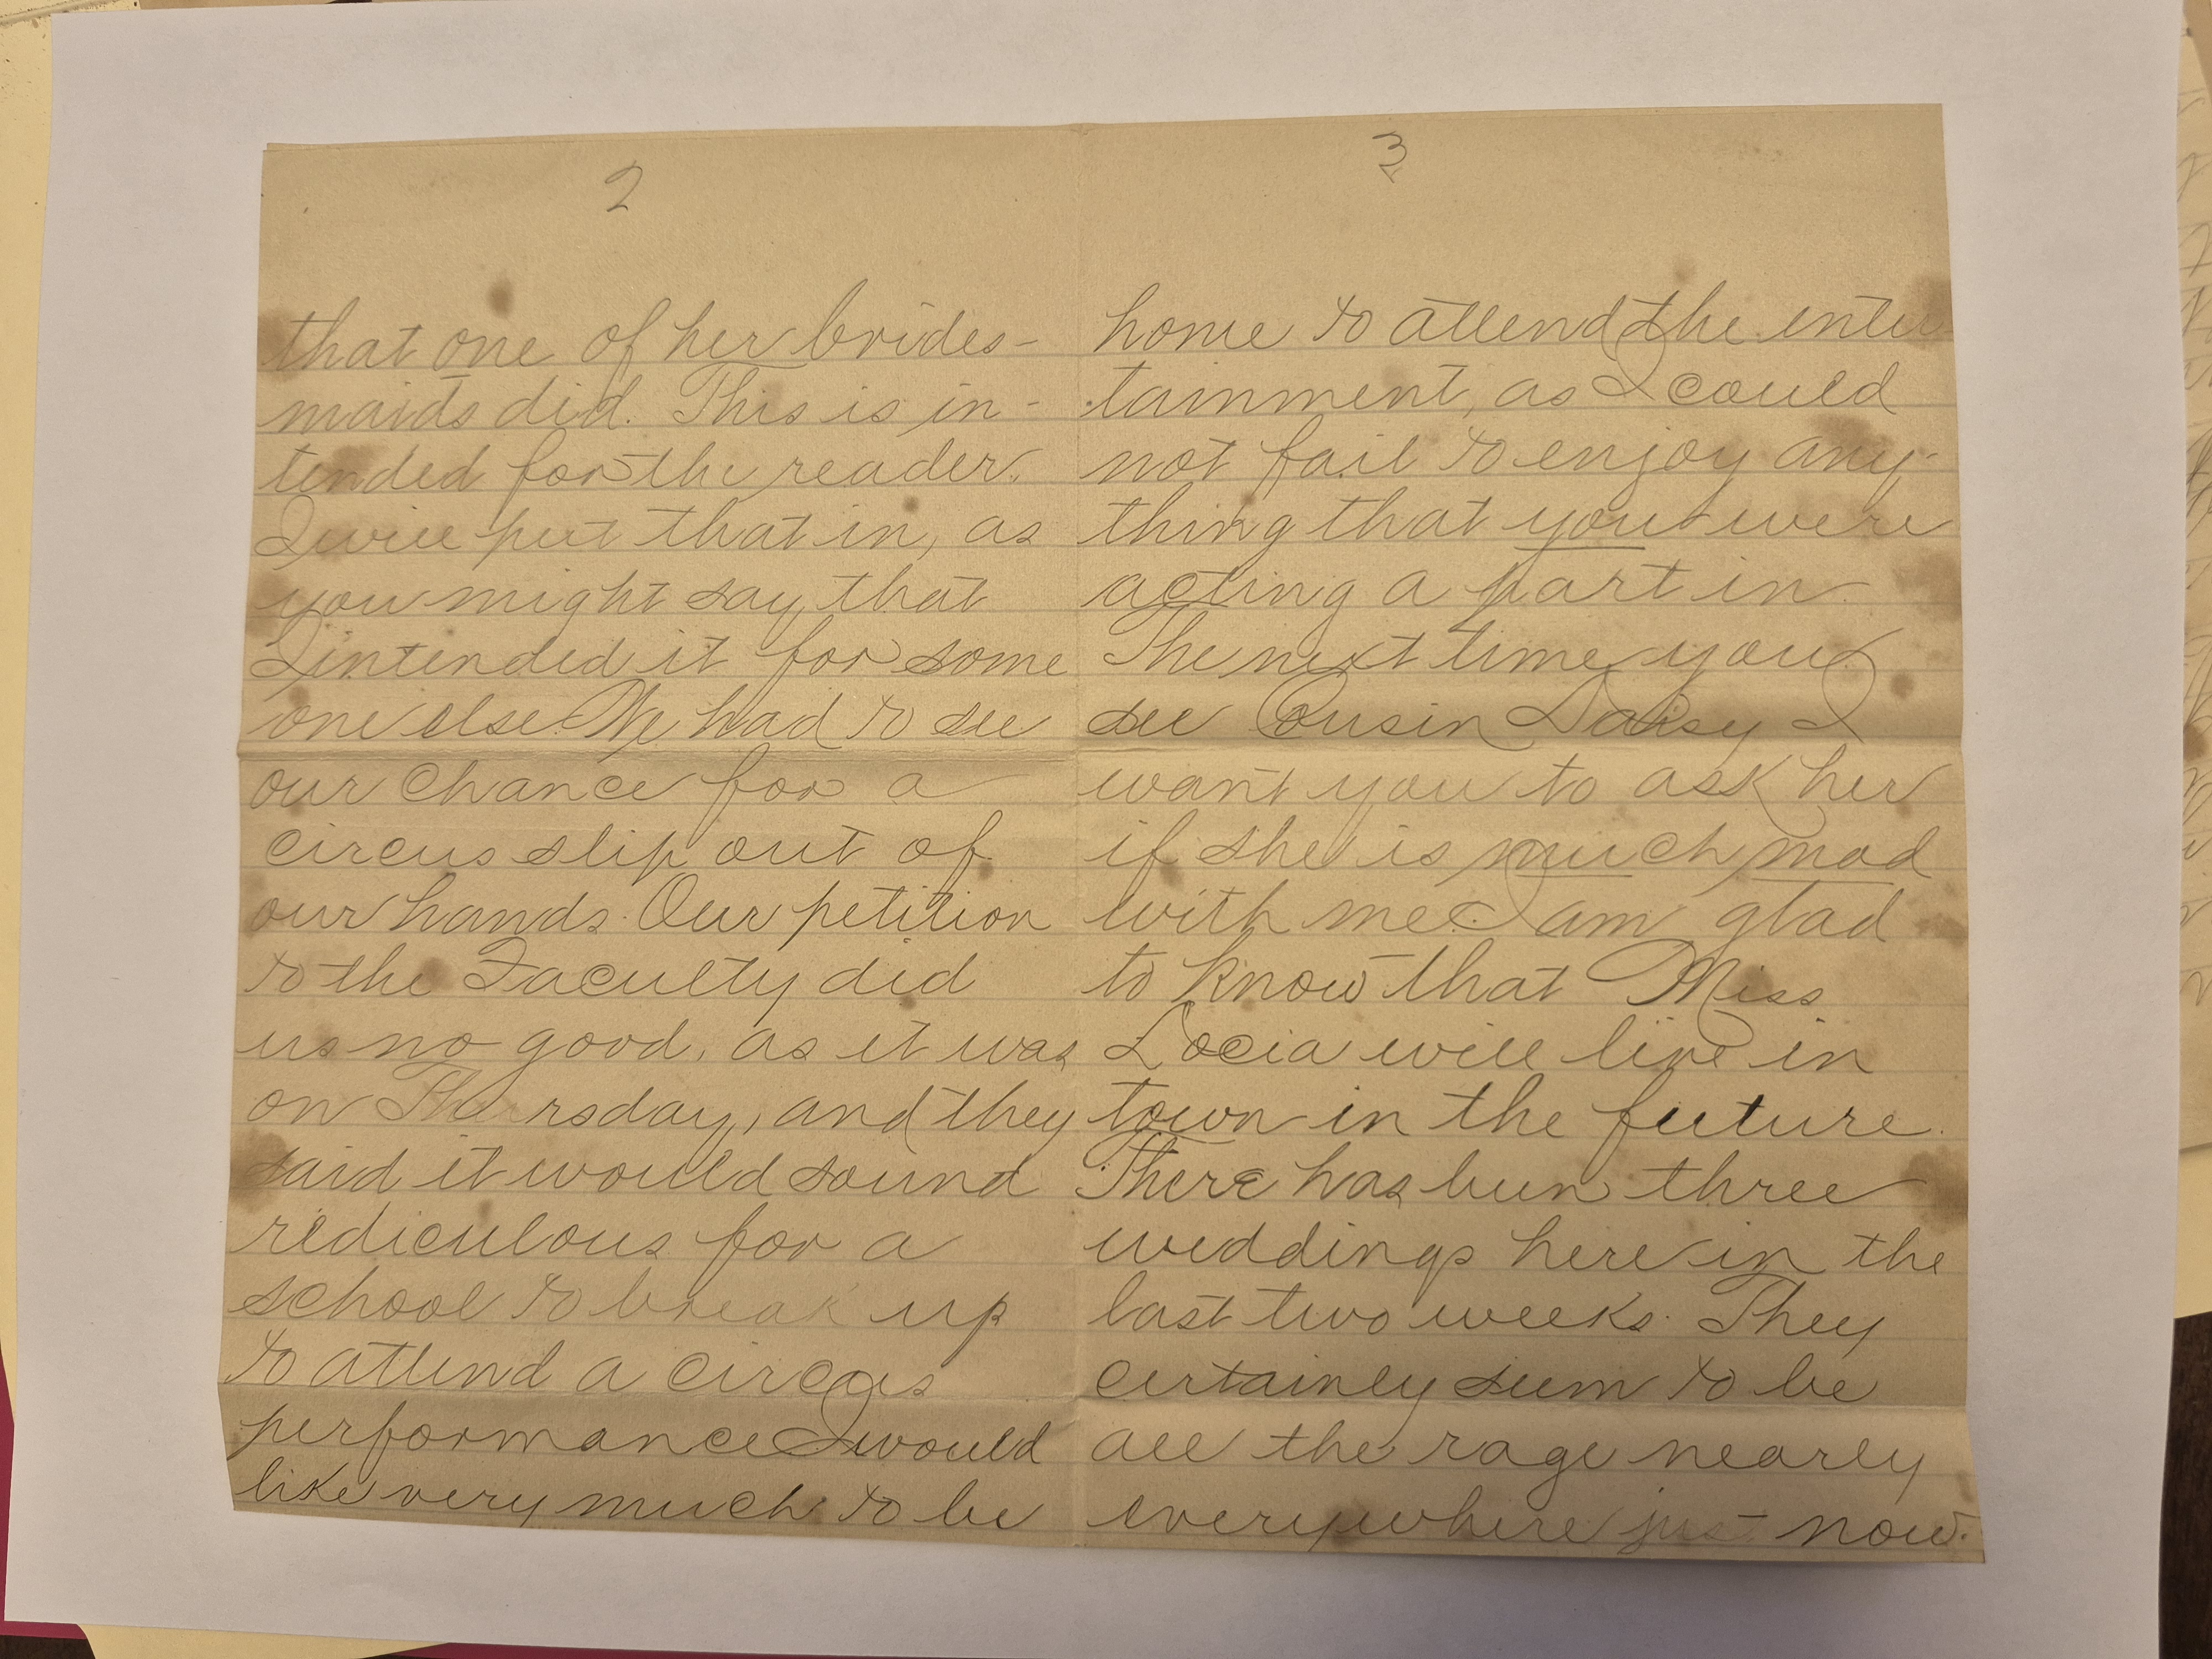 2
that one of her brides-
maids did. This is in-
tended for the reader.
I will put that in, as
you might say that
I intended it for some
one else. We had to see
our chance for a
circus slip out of
our hands. Our petition
to the Faculty did
us no good, as it was
on Thursday, and they
said it would sound
rediculous for a
school to break up
to attend a circus
performance I would
like very much to be
3
home to attend the enter
tainment, as I could
not fail to enjoy any-
thing that you were
acting a part in.
The next time you
see Cousin Daisy I
want you to ask her
if she is much mad
with me. I am glad
to know that Miss
Locia will live in
town in the future.
There has been three
weddings here in the
last two weeks. They
certainly seem to be
all the rage nearly
everywhere just now.